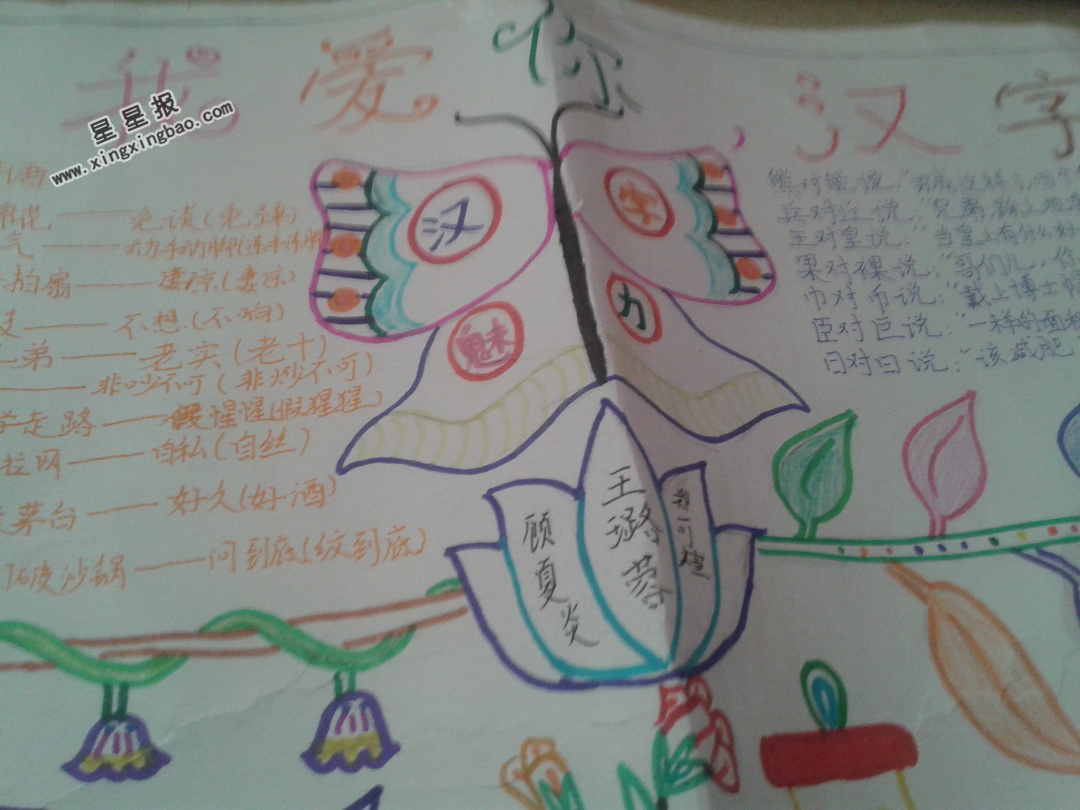 我爱你,汉字
星星报
www.xingxingbao.com
汉字
魅力
气——动手动脚(冻手冻脚)
拍扇——凄凉(妻凉)
——不想(不响)
兄弟——老实(老十)
——非吵不可(非炒不可)
学走路——假惺惺(假猩猩)
拉网——自私(自丝)
茅台——好久(好酒)
破沙锅——问到底(纹到底)
熊对能说:"
兵对丘说:"兄弟,
王对皇说:"当皇上有什么好
果对裸说:"哥们儿,你
巾对币说:"戴上博士帽
臣对巨说:"一样的面积
日对曰说:"该减肥
顾夏炎
王璐蓉